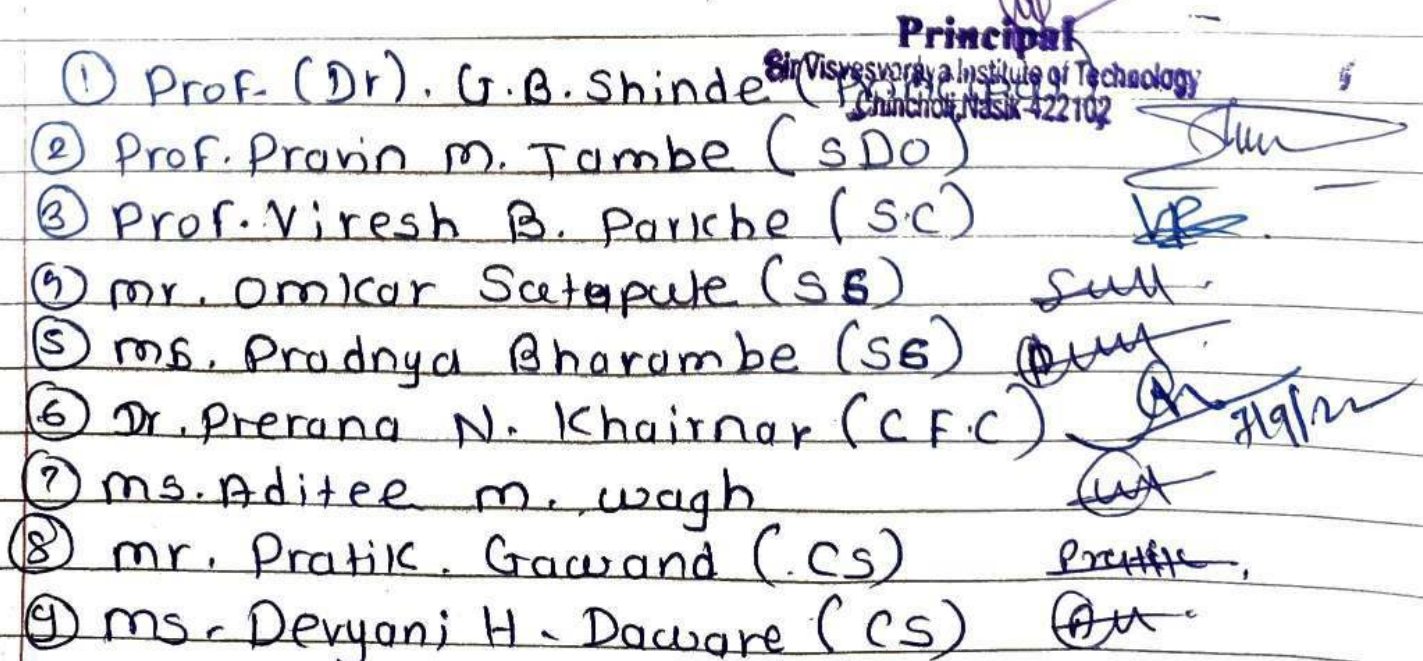 Principal
Sir Visvesvaraya Institute of Technology
Chincholi, Nasik-422102
① Prof. (Dr). G.B. Shinde
② Prof. Pravin M. Tambe (SDO)
③ Prof. Viresh B. Parkhe (S.C)
④ mr. Omkar Satapute (SS)
⑤ ms. Pradnya Bharambe (SS)
⑥ Dr. Prerana N. Khairnar (C F.C) 7/9/22
⑦ ms. Aditee m. wagh
⑧ mr. Pratik. Gawand (.CS) Pratik
⑨ ms- Devyani H. Daware (CS)